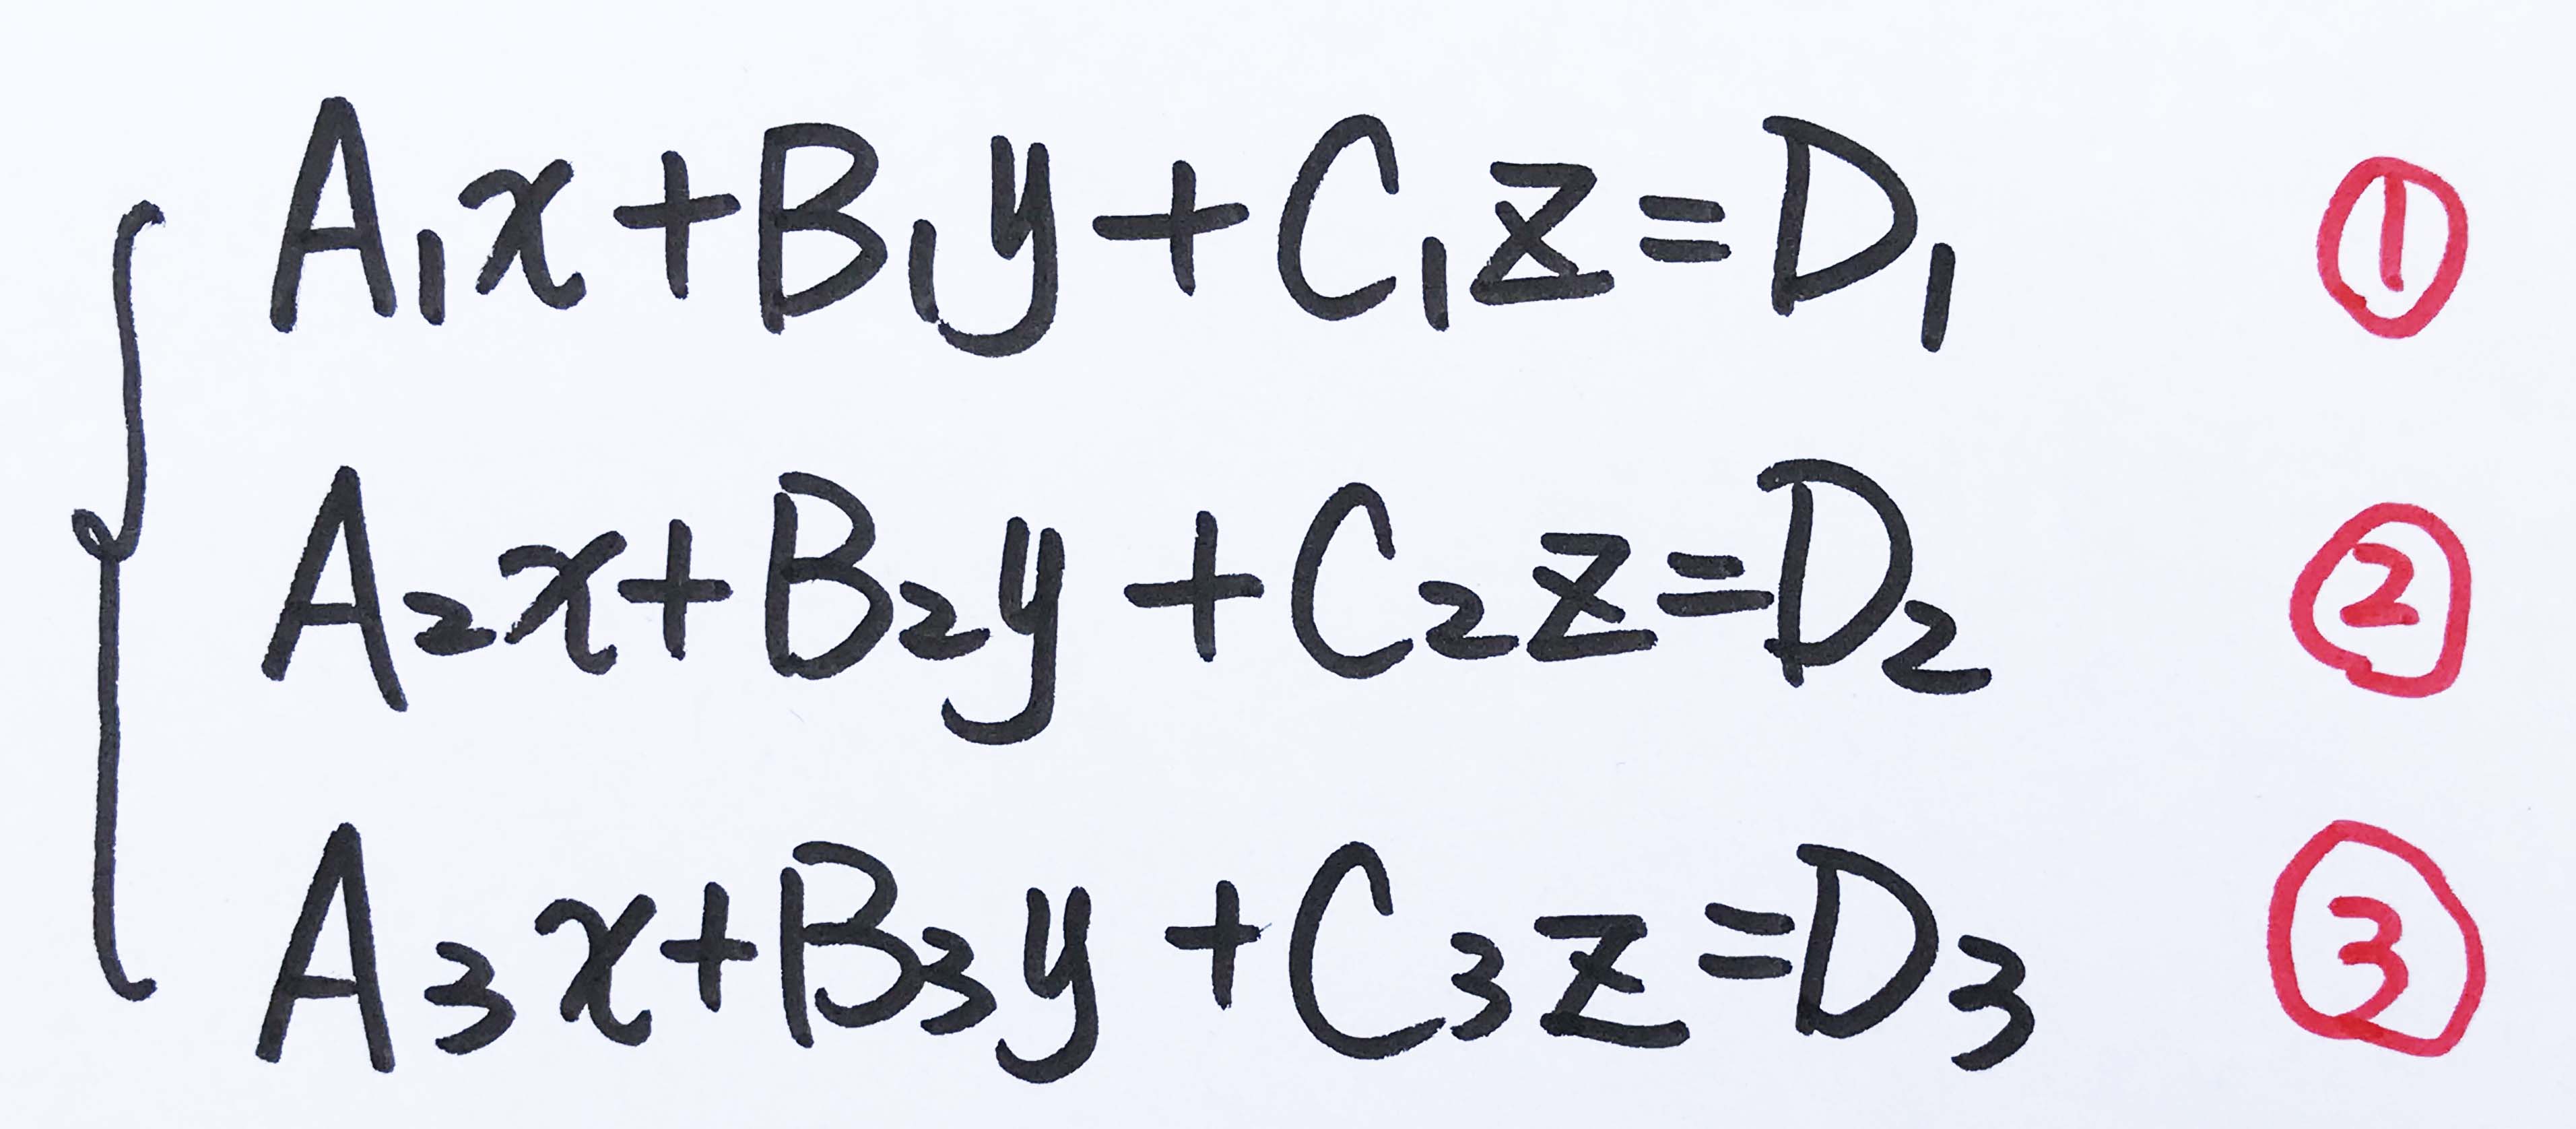 A₁x+B₁y+C₁z=D₁ ①
A₂x+B₂y+C₂z=D₂ ②
A₃x+B₃y+C₃z=D₃ ③